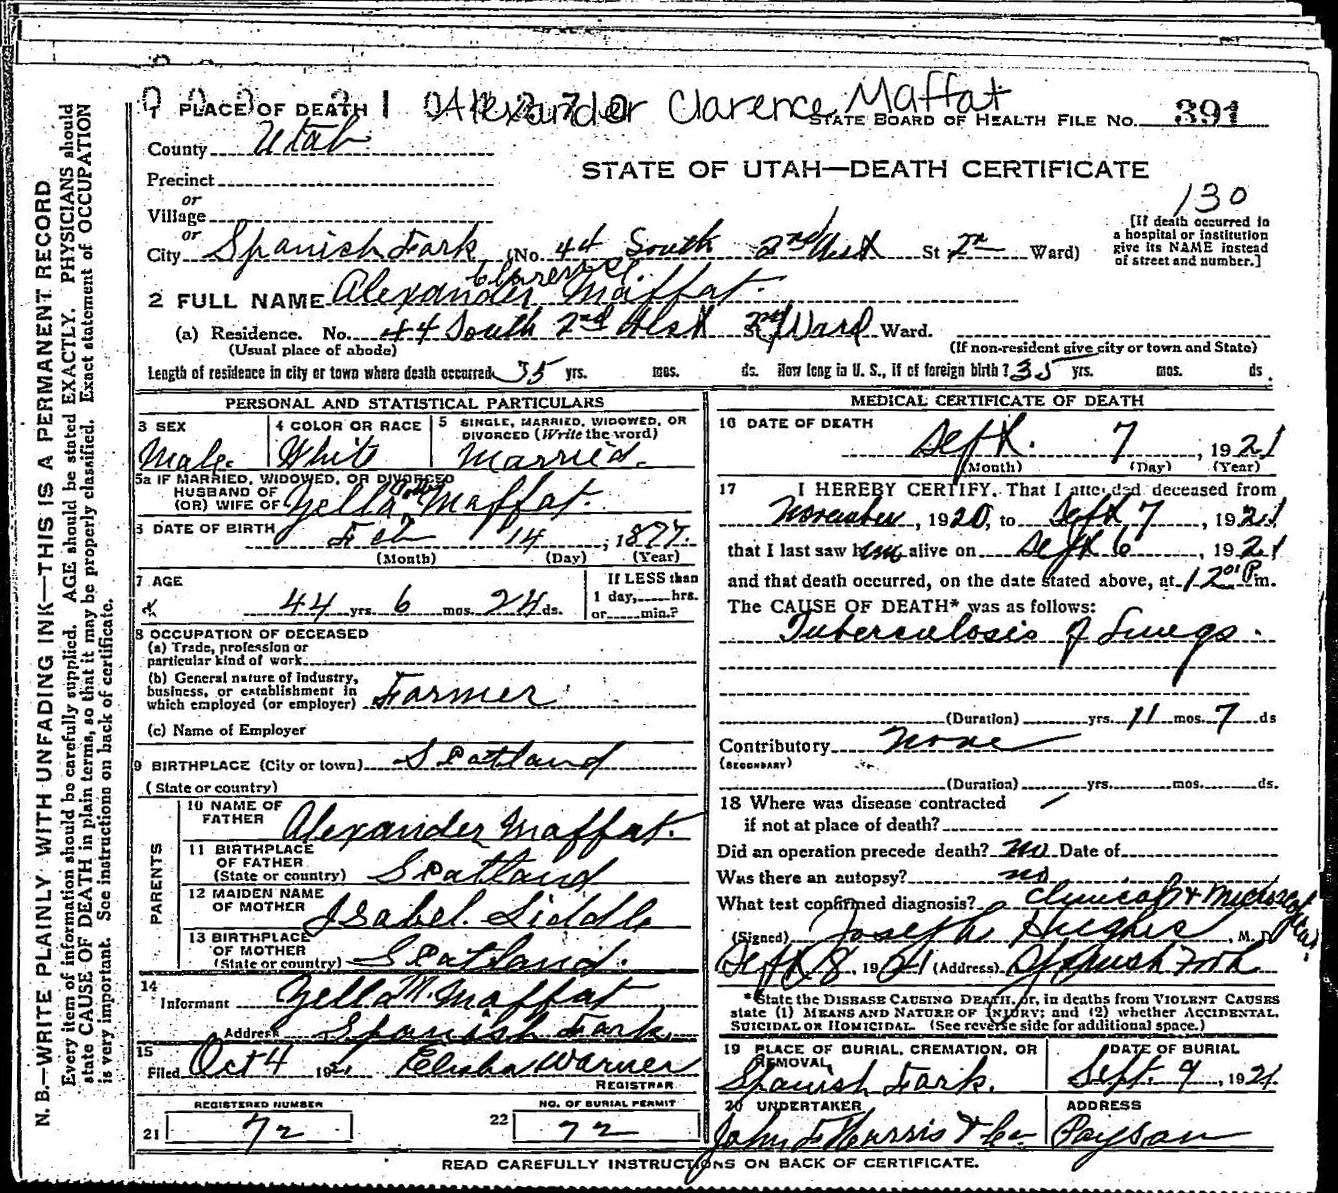 Alexander Clarence Maffat
1 PLACE OF DEATH
STATE BOARD OF HEALTH FILE No. 391
County Utah
STATE OF UTAH—DEATH CERTIFICATE
Precinct
or
Village
130
or
City Spanish Fark (No. 44 South 2nd West St 2n Ward)
[If death occurred in a hospital or institution give its NAME instead of street and number.]
Clarence
2 FULL NAME Alexander Maffat.
(a) Residence. No. 44 South 2nd West 2nd Ward Ward.
(Usual place of abode) (If non-resident give city or town and State)
Length of residence in city or town where death occurred 35 yrs. mos. ds. How long in U. S., if of foreign birth? 35 yrs. mos. ds.
PERSONAL AND STATISTICAL PARTICULARS
3 SEX 4 COLOR OR RACE 5 SINGLE, MARRIED, WIDOWED, OR DIVORCED (Write the word)
Male. White Married.
5a IF MARRIED, WIDOWED, OR DIVORCED
HUSBAND OF
(OR) WIFE OF Zella Maffat.
6 DATE OF BIRTH Feb 14, 1877.
(Month) (Day) (Year)
7 AGE If LESS than
44 yrs 6 mos. 24 ds. 1 day, hrs.
or min.?
8 OCCUPATION OF DECEASED
(a) Trade, profession or
particular kind of work
(b) General nature of industry,
business, or establishment in
which employed (or employer) Farmer
(c) Name of Employer
9 BIRTHPLACE (City or town) Scatland
(State or country)
PARENTS
10 NAME OF
FATHER Alexander Maffat.
11 BIRTHPLACE
OF FATHER
(State or country) Scatland
12 MAIDEN NAME
OF MOTHER Isabel Liddle
13 BIRTHPLACE
OF MOTHER
(State or country) Scatland.
14
Informant Zella M. Maffat
Address Spanish Fark
15
Filed Oct 4 1921 Elisha Warner
REGISTRAR
REGISTERED NUMBER NO. OF BURIAL PERMIT
21 72 22 72
MEDICAL CERTIFICATE OF DEATH
16 DATE OF DEATH
Sept. 7, 1921
(Month) (Day) (Year)
17 I HEREBY CERTIFY, That I attended deceased from
November, 1920, to Sept 7, 1921
that I last saw him alive on Sept 6, 1921
and that death occurred, on the date stated above, at 12 01 P.m.
The CAUSE OF DEATH* was as follows:
Tuberculosis of Lungs.
(Duration) yrs. 11 mos. 7 ds
Contributory None
(SECONDARY)
(Duration) yrs. mos. ds.
18 Where was disease contracted
if not at place of death?
Did an operation precede death? no Date of
Was there an autopsy? no
What test confirmed diagnosis? Clinical & Microscopical
(Signed) Joseph Hughes, M. D.
Sept 8, 1921 (Address) Spanish Fork
*State the DISEASE CAUSING DEATH, or, in deaths from VIOLENT CAUSES
state (1) MEANS AND NATURE OF INJURY; and (2) whether ACCIDENTAL,
SUICIDAL OR HOMICIDAL. (See reverse side for additional space.)
19 PLACE OF BURIAL, CREMATION, OR REMOVAL DATE OF BURIAL
Spanish Fark. Sept. 9, 1921
20 UNDERTAKER ADDRESS
John F Harris & Co Payson
READ CAREFULLY INSTRUCTIONS ON BACK OF CERTIFICATE.
N. B.—WRITE PLAINLY WITH UNFADING INK—THIS IS A PERMANENT RECORD
Every item of information should be carefully supplied. AGE should be stated EXACTLY. PHYSICIANS should
state CAUSE OF DEATH in plain terms, so that it may be properly classified. Exact statement of OCCUPATION
is very important. See instructions on back of certificate.